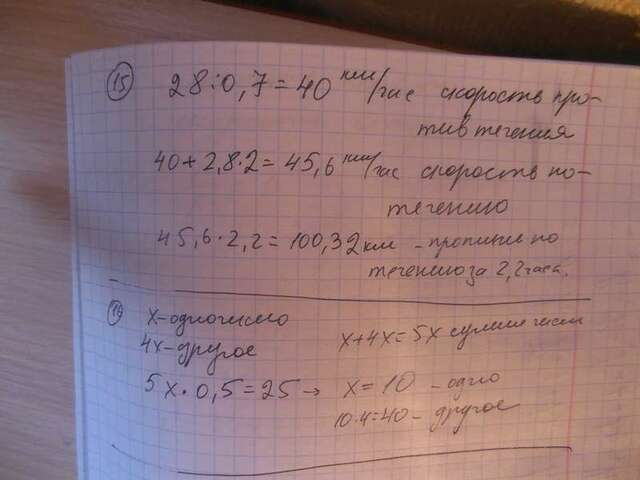 15 28:0,7=40 км/час скорость про-
тив течения
40+2,8·2=45,6 км/час скорость по-
течению
45,6·2,2=100,32 км - проплыв по
течению за 2,2 часа.
14 x-одно число
4x-другое x+4x=5x сумма чисел
5x·0,5=25 → x=10 - одно
10·4=40- другое